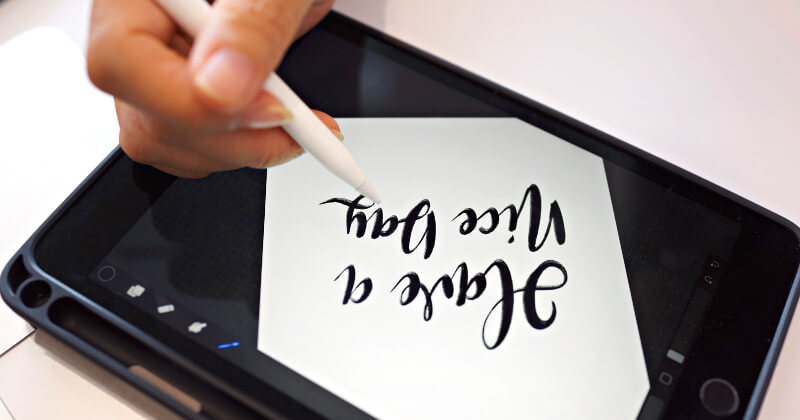 Have a
Nice Day